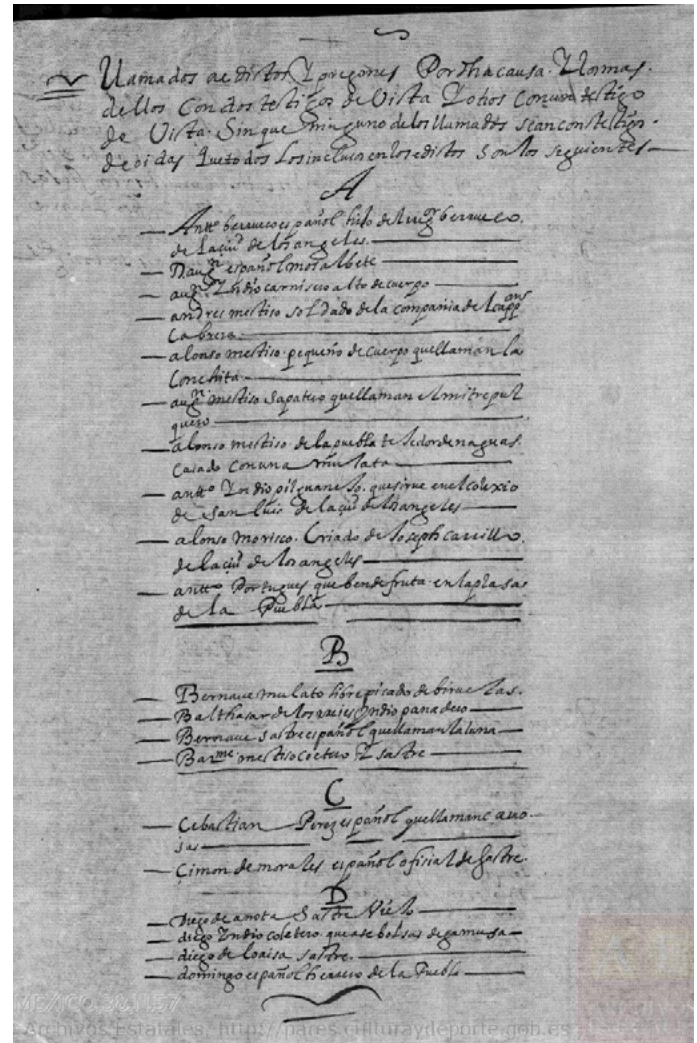 llamados a edictos Y pregones Por dha causa. Y
dellos Con dos testigos de Vista Y otros Con un testigo
de Vista. Sin que ninguno de los llamados sean con testigos
de oidas que todos Los inclusos en los edictos Son los seguientes
A
Antto berrueco español hijo de berrueco.
de La ciu.d de los angeles.
D. aug.n español moralbete
aug.n Yndio carnisero alto de cuerpo
andres mestiso soldado de la compania de L cap.an
Cabrera
alonso mestiso. pequeño de cuerpo quellaman la
Conchita
aug.n mestiso Sapatero quellaman el mitre pul
quero
alonso mestiso. de la puebla texedor de naguas.
Casado Con una Mulata
antto Yndio pilguanejo. que sirve en el colexio
de San Luis de la ciu.d de los angeles
alonso morisco. Criado de Joseph Carrillo.
de la ciu.d de los angeles
antto Portugues que bende fruta en la plasa
de La Puebla
B
Bernave mulato libre picado de biruelas.
Balthasar de los reies Yndio panadero
Bernave sastre español quellaman la luna
Bar.me mestiso coetero Y sastre
C
Cebastian Perez español quellaman
sas
Çimon de morales español oficial de Sastre.
D
Diego de anota Sastre Viejo
diego Yndio coletero que ase bolsas de gamusa
diego de loaisa sastre.
domingo español herrero de la Puebla
MEXICO,38,N.57
Archivos Estatales, http://pares.culturaydeporte.gob.es